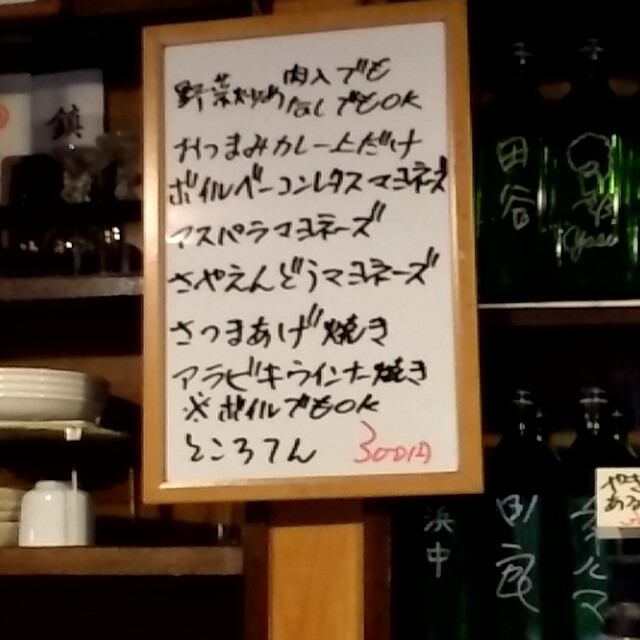 野菜炒め 肉入でも
なしでもOK
おつまみカレー上だけ
ボイルベーコンレタスマヨネズ
アスパラマヨネーズ
さやえんどうマヨネーズ
さつまあげ焼き
アラビキウインナー焼き
※ボイルでもOK
ところてん 300円
鎮
田谷
浜中